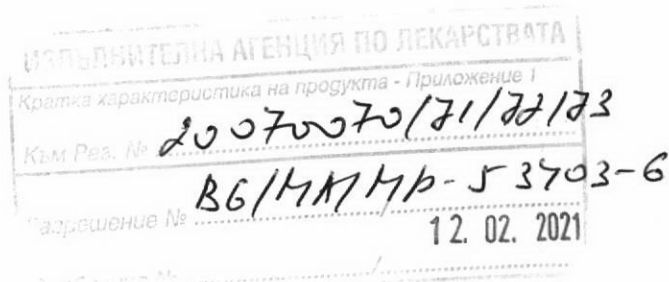 ИЗПЪЛНИТЕЛНА АГЕНЦИЯ ПО ЛЕКАРСТВАТА
Кратка характеристика на продукта - Приложение 1
Към Рег. № 20070070/71/72/73
BG/MA/MP-53703-6
Разрешение №
12. 02. 2021